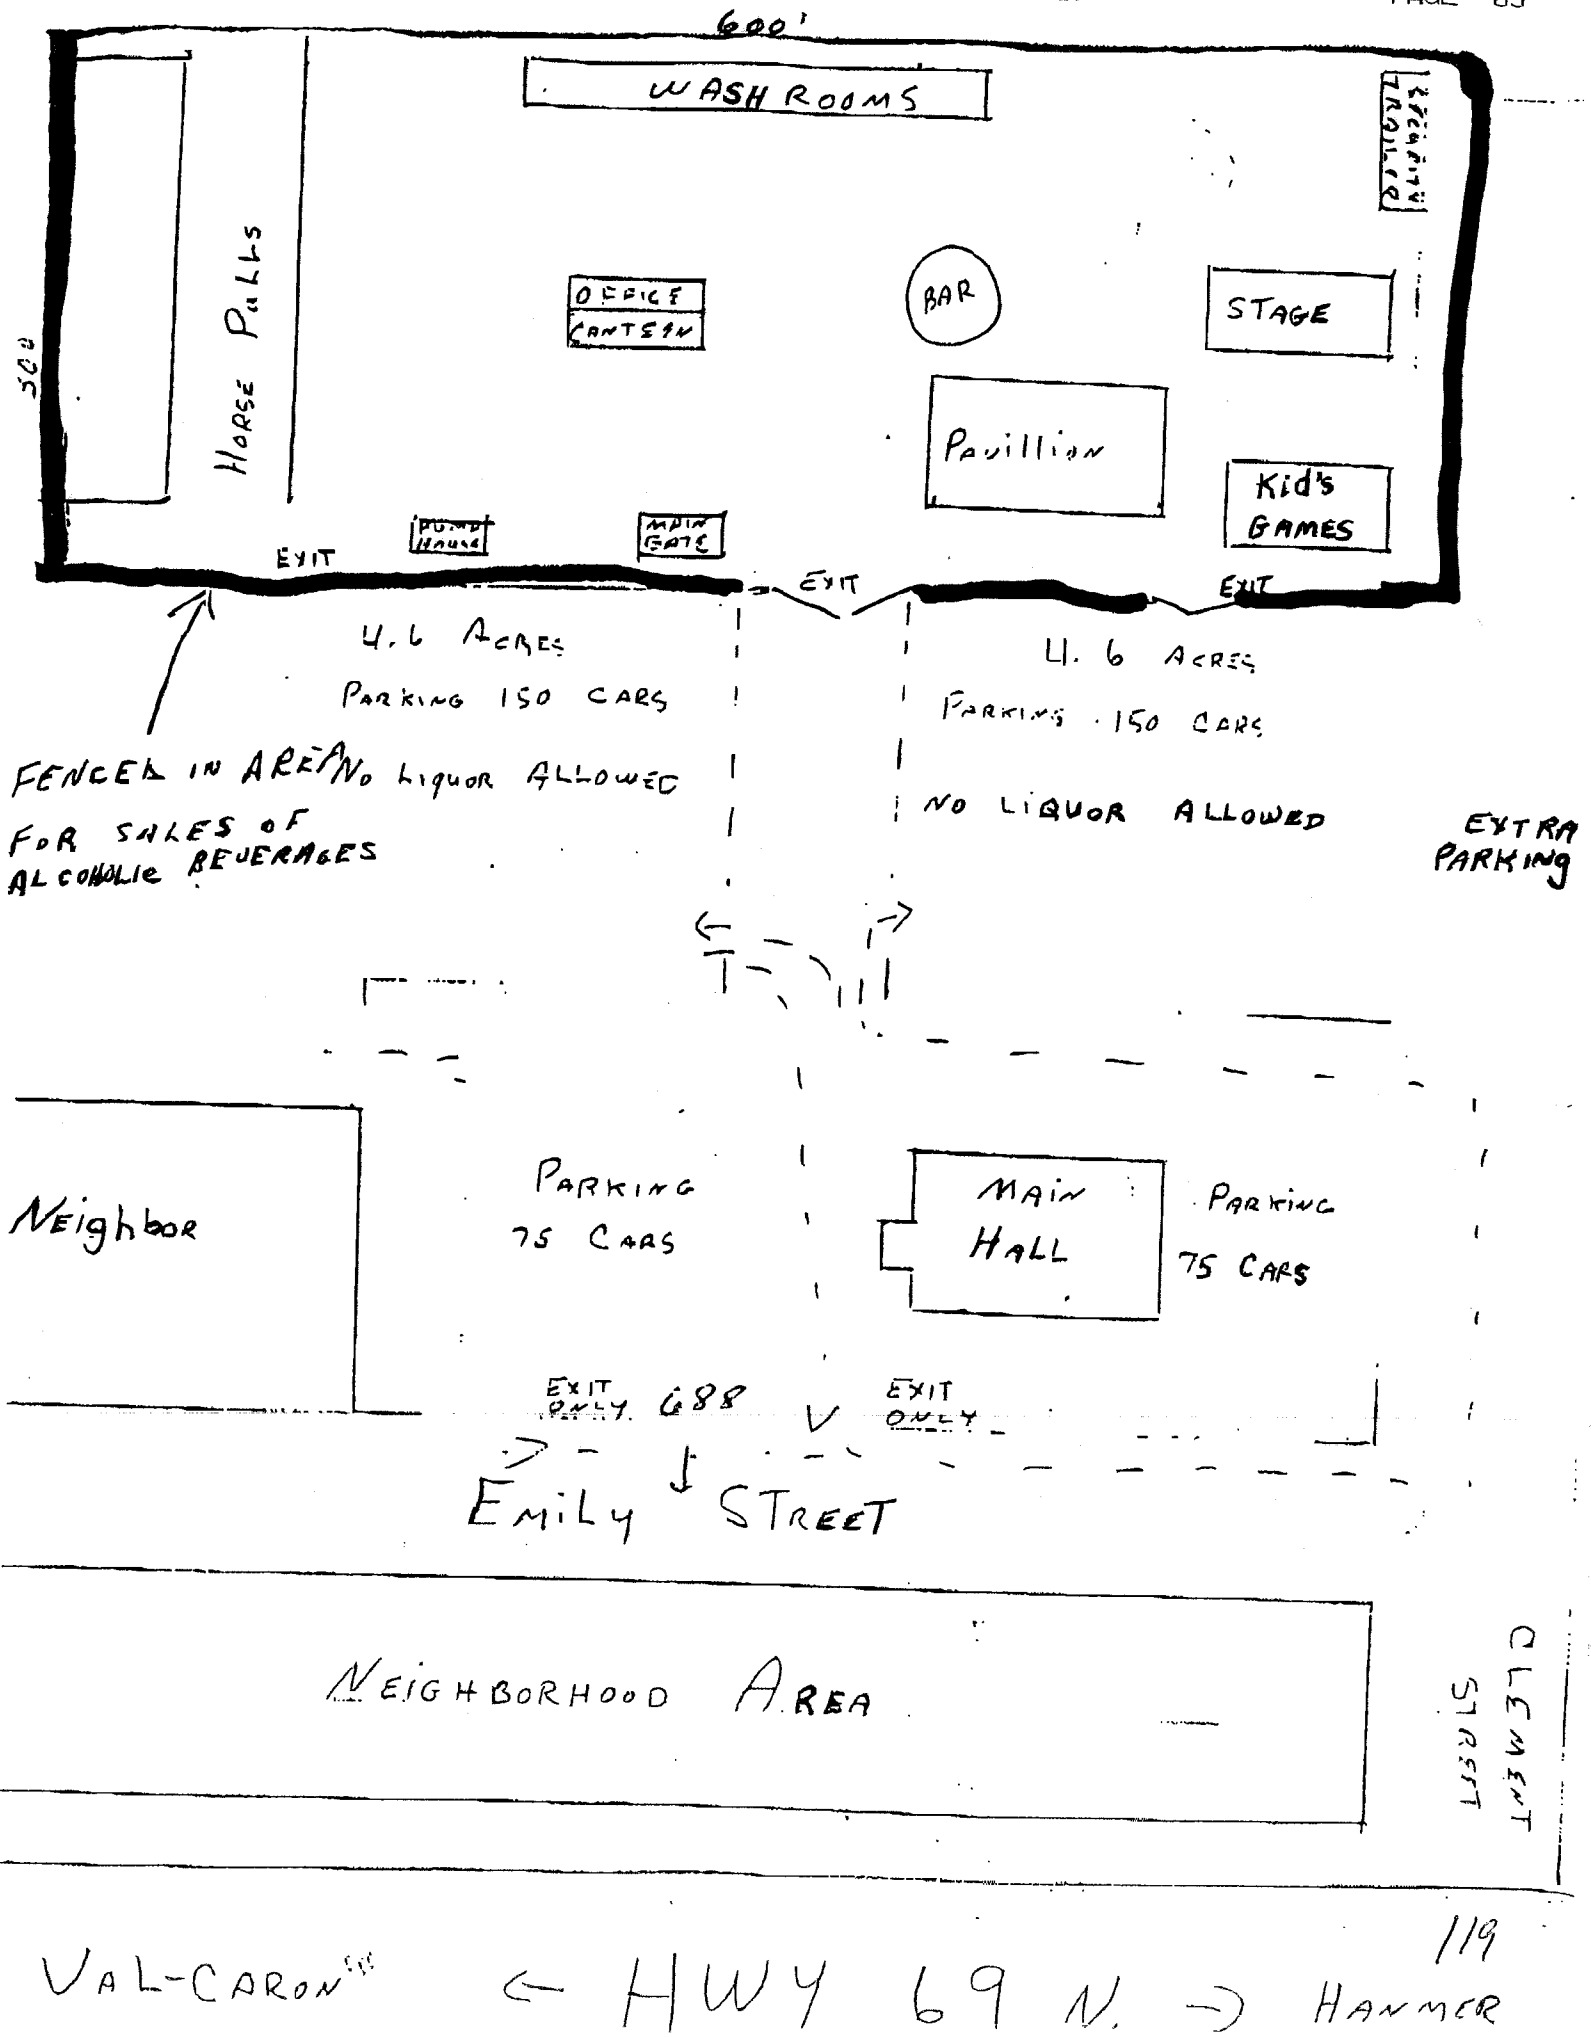 PAGE 03
600'
WASHROOMS
SECURITY
TRAILER
HORSE PULLS
OFFICE
CANTEEN
BAR
STAGE
500
Pavillion
Kid's
GAMES
PUMP
HOUSE
MAIN
GATE
EXIT
EXIT
EXIT
4.6 ACRES
PARKING 150 CARS
4.6 ACRES
PARKING 150 CARS
FENCED IN AREA
FOR SALES OF
ALCOHOLIC BEVERAGES
No LiQUOR ALLOWED
NO LiQUOR ALLOWED
EXTRA
PARKING
NEighboR
PARKING
75 CARS
MAiN
HALL
PARKiNG
75 CARS
EXIT
ONLY
688
EXIT
ONLY
EmiLy STREET
NEiGHBORHOOD AREA
CLEMENT
STREET
119
VAL-CARON ← HWY 69 N. → HANMER